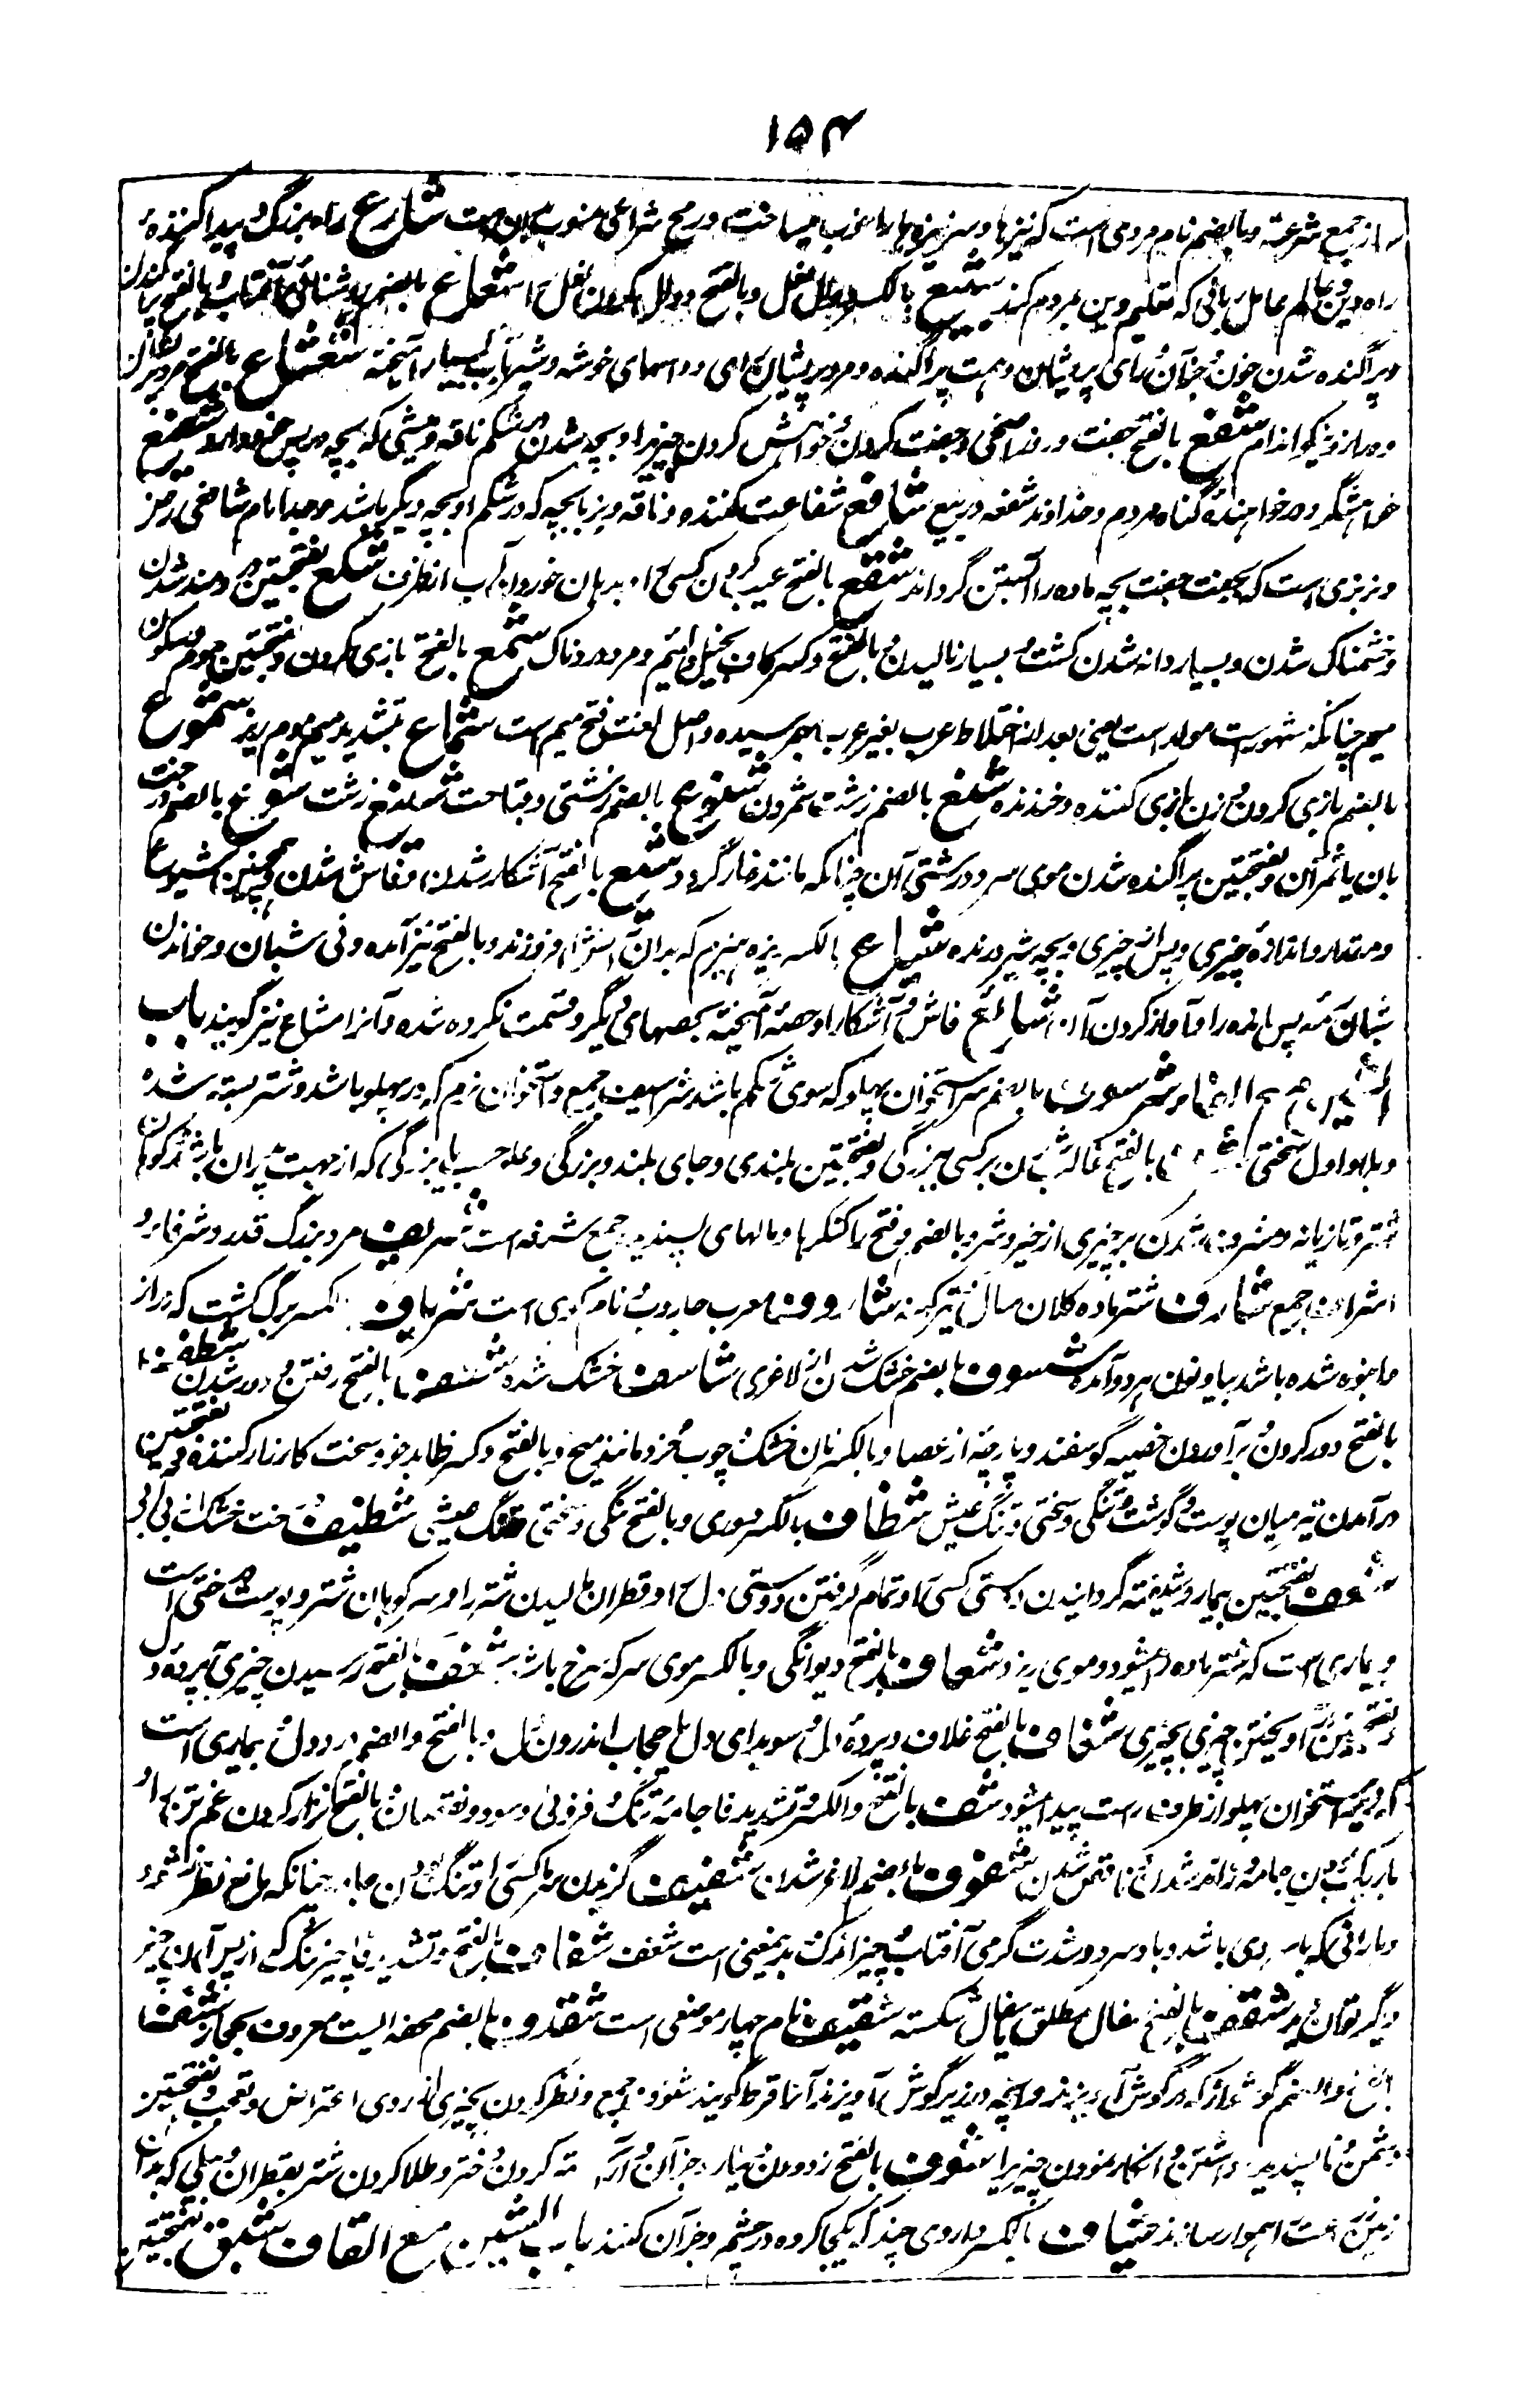 ۱۵۴
از جمع شرعة و بالضم نام مردمی است که نیزها و سر نیزها را خوب میساخت و رمح شراعی منسوب بان است شارع راه بزرگ و پیدا کننده
راه دین و عالم عامل ربانی که تعلیم دین بمردم کند شسع بالکسر دوال نعل و بالفتح دوال کردن نعل را شعاع بالضم روشنائی آفتاب و بالفتح پراکندن
و پراگنده شدن خون و جز آن و رای پریشان و همت پراگنده و مرد پریشان رای و داسهای خوشه و شیر بآب بسیار آمیخته شعشاع بالفتح مرد
و دراز و نیکو اندام شفع بالفتح جفت و روز اضحی و جفت کردن و خواهش کردن چیزیرا و بچه شدن در شکم ناقه و میشی که بچه در پس خود دارد شفیع
خواهشگر و درخواهنده گناه مردم و خداوند شفعه در بیع شافع شفاعت کننده و ناقه و بز با بچه که در شکم او بچه دیگر باشد و جد امام شافعی رحمز
و نر بزی است که بجفت جفت بچه ماده را آبستن گرداند شقع بالفتح عیب کردن کسی را و بدهان خوردن آب از ظرف شکع بفتحتین دردمند شدن
و خشمناک شدن و بسیار دانه شدن کشت و بسیار نالیدن و بالفتح و کسر کاف بخیل و لئیم و مرد دردناک شمع بالفتح بازی کردن و بفتحتین موم و سکون
میم چنانکه مشهور است مولد است یعنی بعد از اختلاط عرب بغیر عرب بهم رسیده و اصل لغتش فتح میم است شماع بتشدید میم موم ریز شموع
بالضم بازی کردن و زن بازی کننده و خندنده شنع بالضم زشت شمردن شنوع بالضم زشتی و قباحت شنیع زشت شوع بالضم درخت
بان یا ثمر آن و بفتحتین پراگنده شدن موی سر و درشتی آن چنانکه مانند خار گردد شیع بالفتح آشکار شدن و فاش شدن و همچنین شیوع
و مقدار و اندازه چیزی و پس از چیزی و بچه شیر درنده شیاع بالکسر ریزه هیزم که بدان آتش را افروزند و بالفتح نیز آمده و نی شبان و خواندن
شبان رمه پس مانده را و آواز کردن آن شائع فاش و آشکارا و حصه آمیخته بحصهای دیگر و قسمت نکرده شده و آنرا مشاع نیز گویند باب
الشین مع الفا شرسوف بالضم سر استخوان پهلو که سوی شکم باشد شراسیف جمع و استخوان نرم که در پهلو باشد و شتر بسته شده
و بلا و اول سختی شرف بالفتح غالب شدن بر کسی ببزرگی و بفتحتین بلندی و جای بلند و بزرگی و علو حسب یا بزرگی که از جهت پدران باشد و کوهان
شتر و تازیانه و مشرف شدن بر چیزی از خیر و شر و بالضم و فتح را کنگرها و مالهای پسندیده جمع شرفه است شریف مرد بزرگ قدر و شرفا و
اشراف جمع شارف شتر ماده کلان سال و تیر کهنه شاروف معرب جاروب و نام کوهی است شریاف بالکسر برگ کشت که دراز
و انبوه شده باشد بیا و نون هر دو آمده شسوف بالضم خشک شدن از لاغری شاسف خشک شده شطف بالفتح رفتن و دور شدن شظف
بالفتح دور کردن و برآوردن خصیه گوسفند و پارچه از عصا و بالکسر نان خشک و چوب خرد مانند میخ و بالفتح و کسر ظا بدخو و سخت کارزار کننده و بفتحتین
درآمدن تیر میان پوست و گوشت و تنگی و سختی و تنگ عیش شظاف بالکسر دوری و بالفتح تنگی و سختی و تنگ عیشی شظیف درخت خشک از بی آبی
شعف بفتحتین بیمار و شیفته گردانیدن دوستی کسی را و تمام گرفتن دوستی دل را و قطران مالیدن شتر را و سر کوهان شتر و پوست درختی است
و بیماری است که شتر ماده را میشود و موی ریزد شعاف بالفتح دیوانگی و بالکسر موی سر که سرخ باشد شغف بالفتح رسیدن چیزی بپرده دل
و بفتحتین درآویختن چیزی بچیزی شغاف بالفتح غلاف و پرده دل و سویدای دل یا حجاب اندرون دل و بالفتح و الضم درد دل و بیماری است
که در زیر استخوان پهلو از طرف راست پیدا میشود شف بالفتح و الکسر و تشدید فا جامه تنگ و فزونی و سود و نقصان و بالفتح نزار کردن غم تن را و
باریک بودن جامه و زائد شدن و ناقص شدن شفوف بالضم لاغر شدن شفیف گزیدن سرما کسی را و تنگ بودن جامه چنانکه مانع نظر نشود
و بارانی که با سردی باشد و باد سرد و شدت گرمی آفتاب و چیز اندک بدین معنی است شفف شفاف بالفتح و تشدید فا چیز تنگ که از پس آن چیز
دیگر توان دید شقف بالفتح سفال مطلق یا سفال شکسته شقیف نام چهار موضعی است شقدوف بالضم محفه ایست معروف بحجاز شنف
بالفتح و الضم گوشواره که در گوش آویزند و آنچه در زیر گوش آویزند آنرا قرط گویند شنوف جمع و نظر کردن بچیزی از روی اعتراض و تعجب و بفتحتین
دشمن و ناپسندیده داشتن و انکار نمودن چیزیرا شوف بالفتح زدودن دینار و جز آن و آراسته کردن دختر و طلا کردن شتر بقطران و بیلی که بدان
زمین را هموار سازند شیاف بالکسر داروی چند که یکجا کرده در چشم و جز آن کنند باب الشین مع القاف شبق بفتحتین